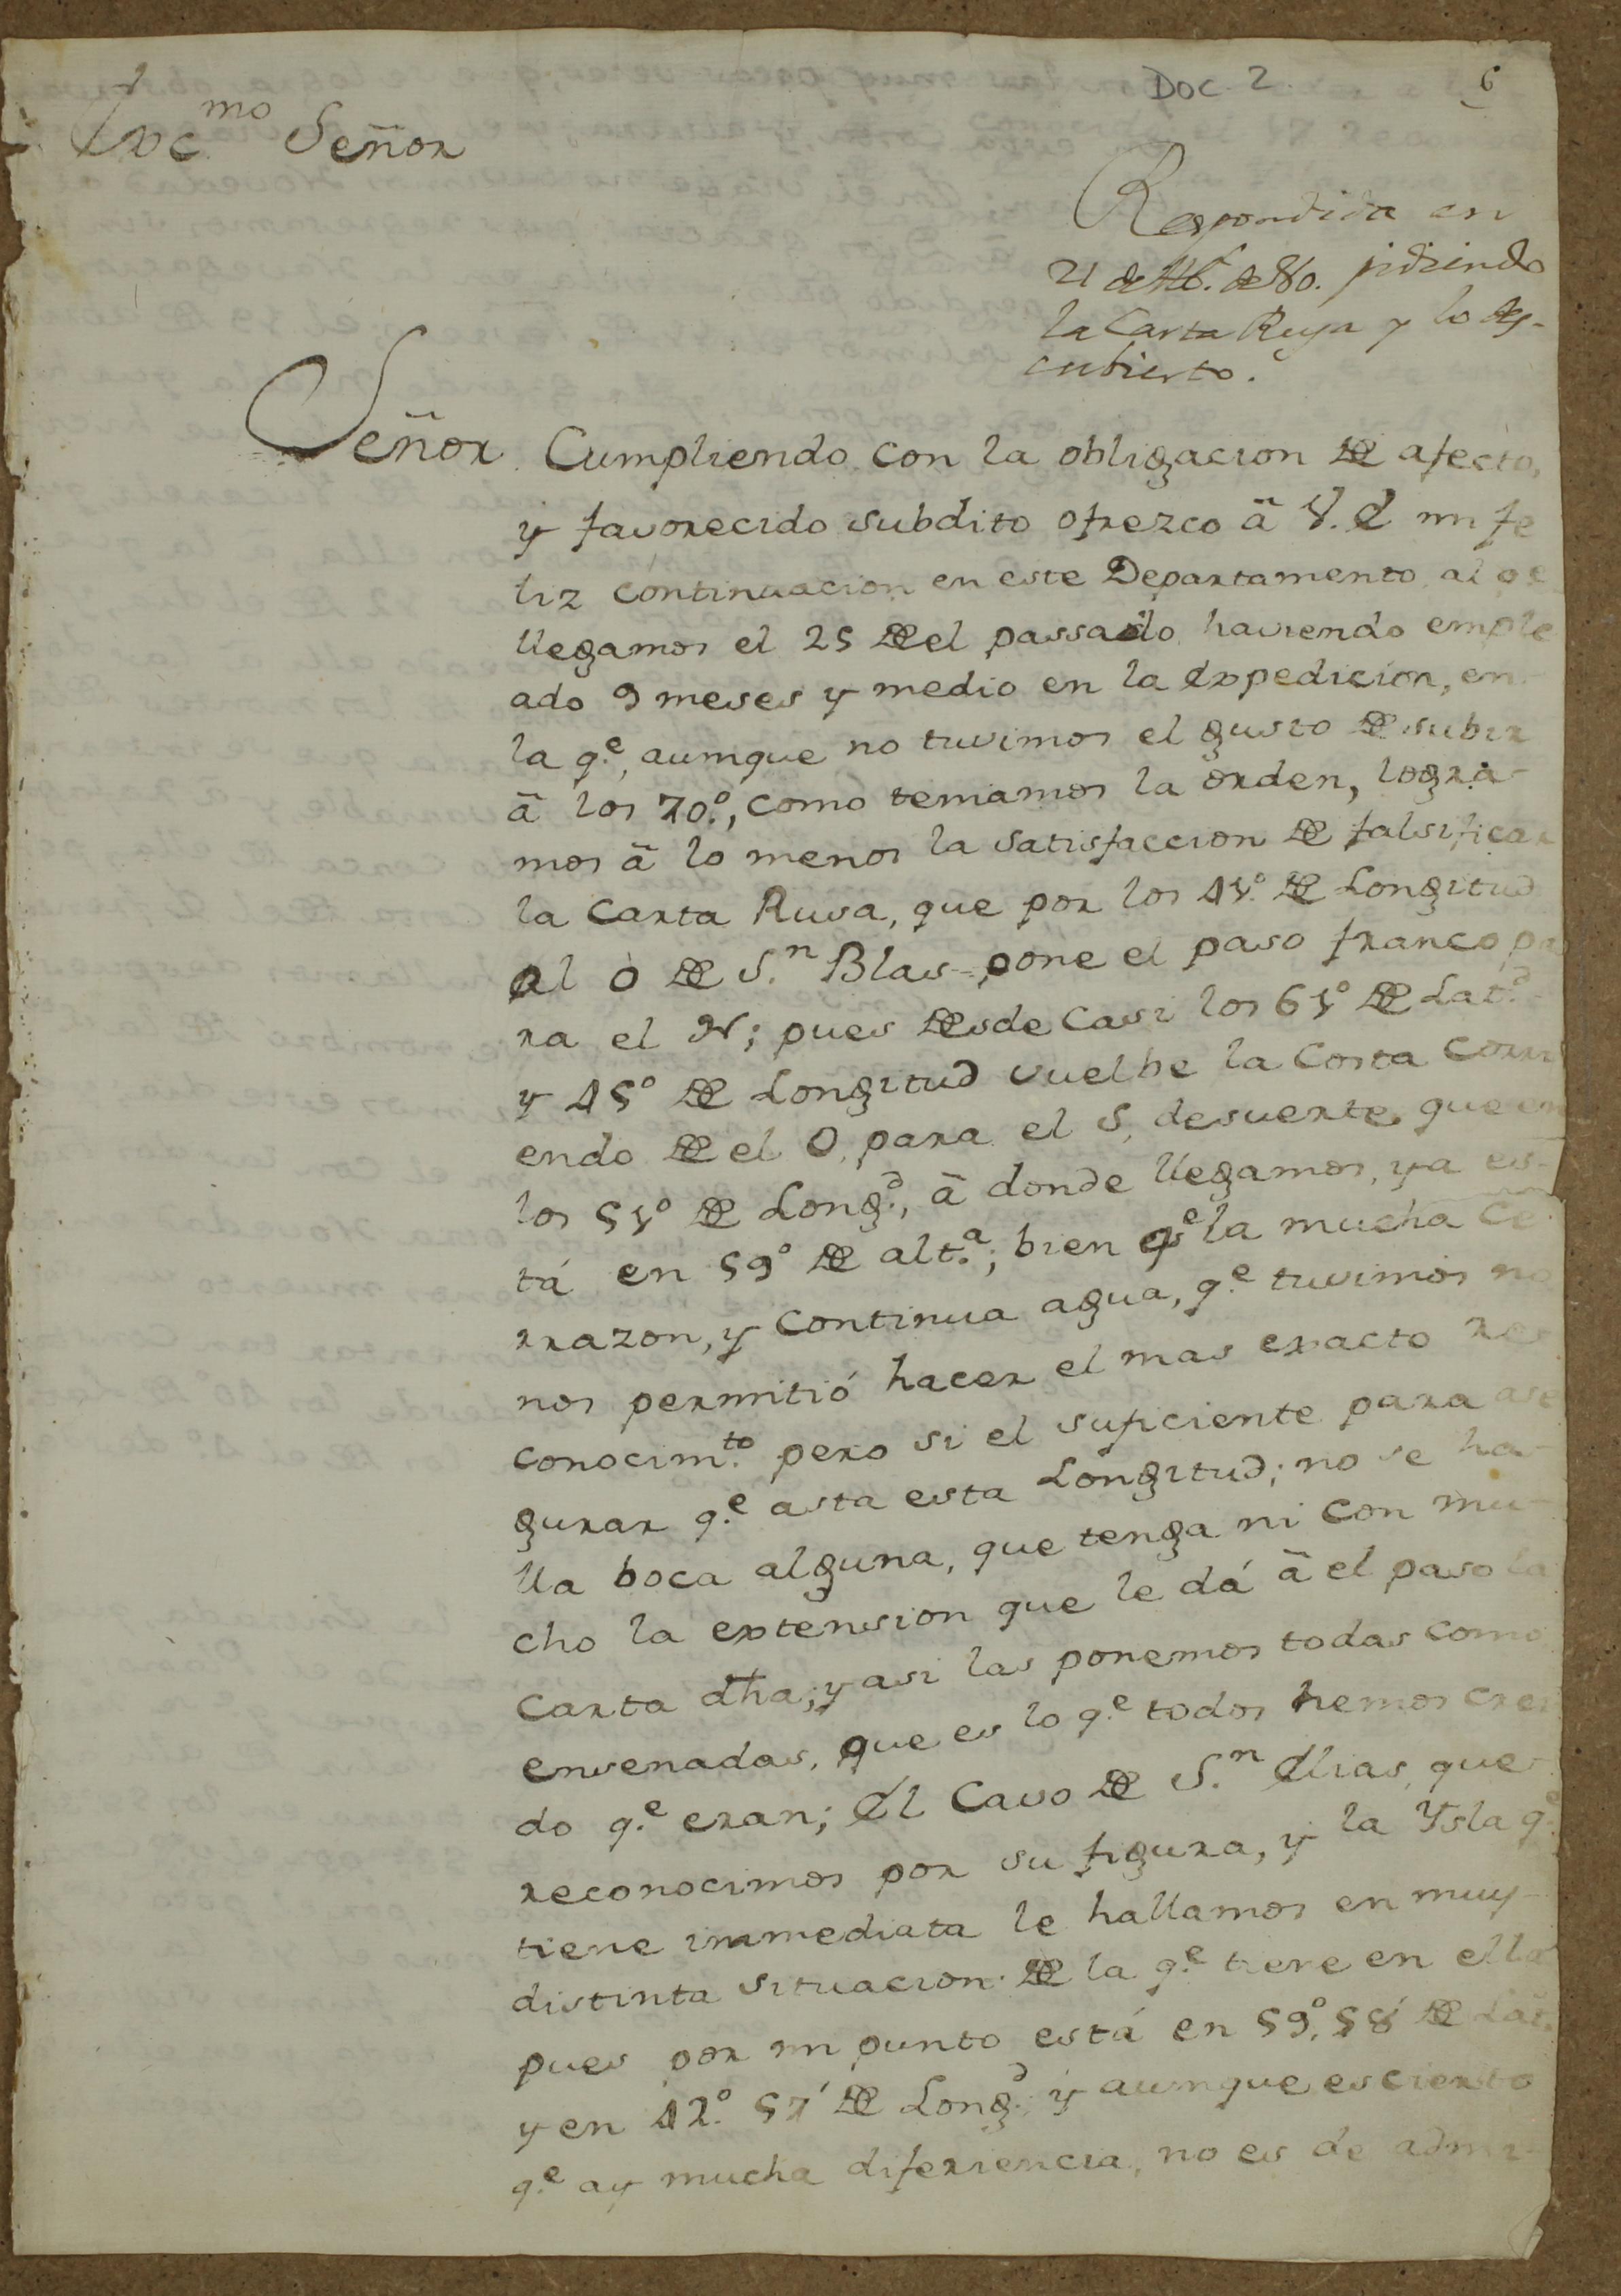 DOC. 2. 6
Exc.mo Señor
Respondida en
21 de de 80. pidiendo
la Carta Rusa y lo des-
cubierto.
Señor. Cumpliendo con la obligacion de afecto,
y favorecido subdito ofrezco â V. E mi fe
liz continuacion en este Departamento al qe
llegamos el 25 de el passado haviendo emple
ado 9 meses y medio en la Expedicion, en-
la q.e, aumque no tuvimos el gusto de subir
â los 70.°, como teniamos la orden, logra-
mos â lo menos la satisfaccion de falsificar
la Carta Rusa, que por los 45.° de Longitud
al O de S.n Blas pone el paso franco pa
ra el N; pues desde casi los 61° de Lat.d
y 45° de Longitud vuelbe la Costa corri
endo de el O, para el S, desuerte que en
los 51° de Long.d, â donde llegamos, ya es-
tá en 59° de alt.a; bien qe la mucha ce
rrazon, y continua agua, q.e tuvimos no
nos permitió hacer el mas exacto re
conocim.to pero si el suficiente para ase
gurar q.e asta esta Longitud; no se ha-
lla boca alguna, que tenga ni con mu-
cho la extension que le dá â el paso la
Carta dha; y asi las ponemos todas como
ensenadas, que es lo q.e todos hemos crei
do q.e eran; El Cavo de S.n Elias, que
reconocimos por su figura, y la Ysla q.e
tiene immediata le hallamos en muy
distinta situacion de la q.e tiene en ella
pues por mi punto está en 59.° 58' de Lat.
y en 42.° 57' de Long.d y aumque es cierto
q.e ay mucha diferiencia, no es de admi-